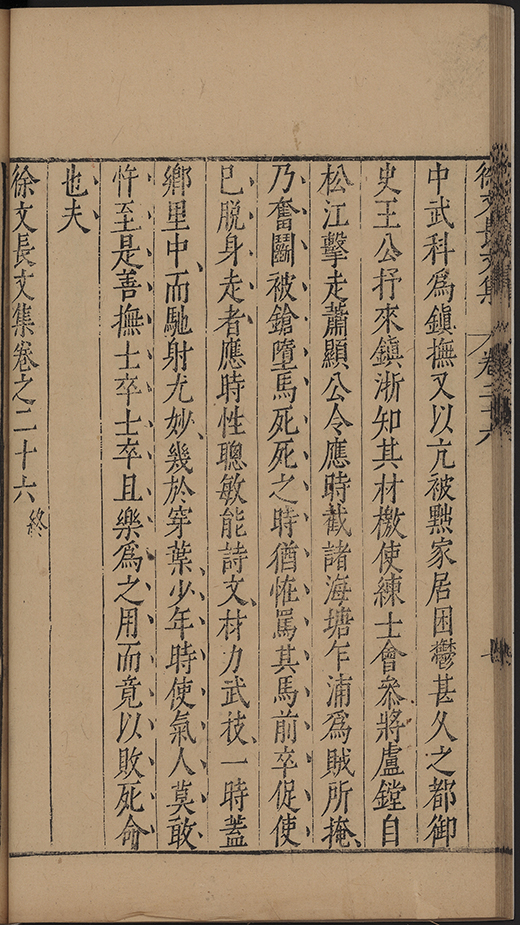 徐文長文集 卷二十六
中武科爲鎮撫又以亢被黜家居困鬱甚久之都御
史王公抒來鎮浙知其材檄使練士會叅將盧鏜自
松江擊走蕭顯公令應時截諸海塘乍浦爲賊所掩
乃奮鬭被鎗墮馬死死之時猶恠罵其馬前卒促使
已脱身走者應時性聰敏能詩文材力武技一時蓋
鄉里中而馳射尤妙幾於穿葉少年時使氣人莫敢
忤至是善撫士卒士卒且樂爲之用而竟以敗死命
也夫
徐文長文集卷之二十六 終